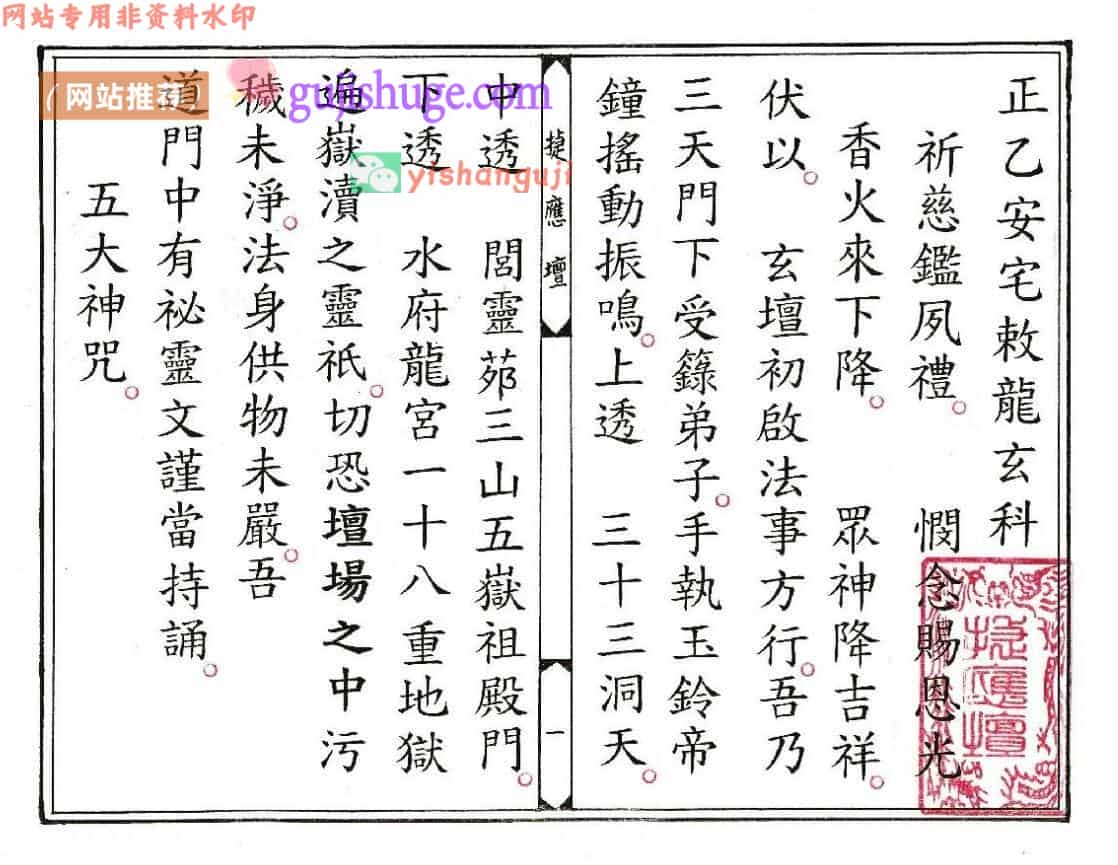 网站专用非资料水印
正乙安宅敕龍玄科
祈慈鑑夙禮。 憫念賜恩光
香火來下降。 眾神降吉祥。
伏以。 玄壇初啟法事方行。吾乃
三天門下受籙弟子。手執玉鈴帝
鐘搖動振鳴。上透 三十三洞天。
捷應壇
一
中透 閭靈茆三山五嶽祖殿門。
下透 水府龍宮一十八重地獄
遍嶽瀆之靈祇。切恐壇場之中污
穢未淨。法身供物未嚴。吾
道門中有祕靈文謹當持誦。
五大神咒。
(网站推荐)
gujishuge.com
yishanguji
捷應壇